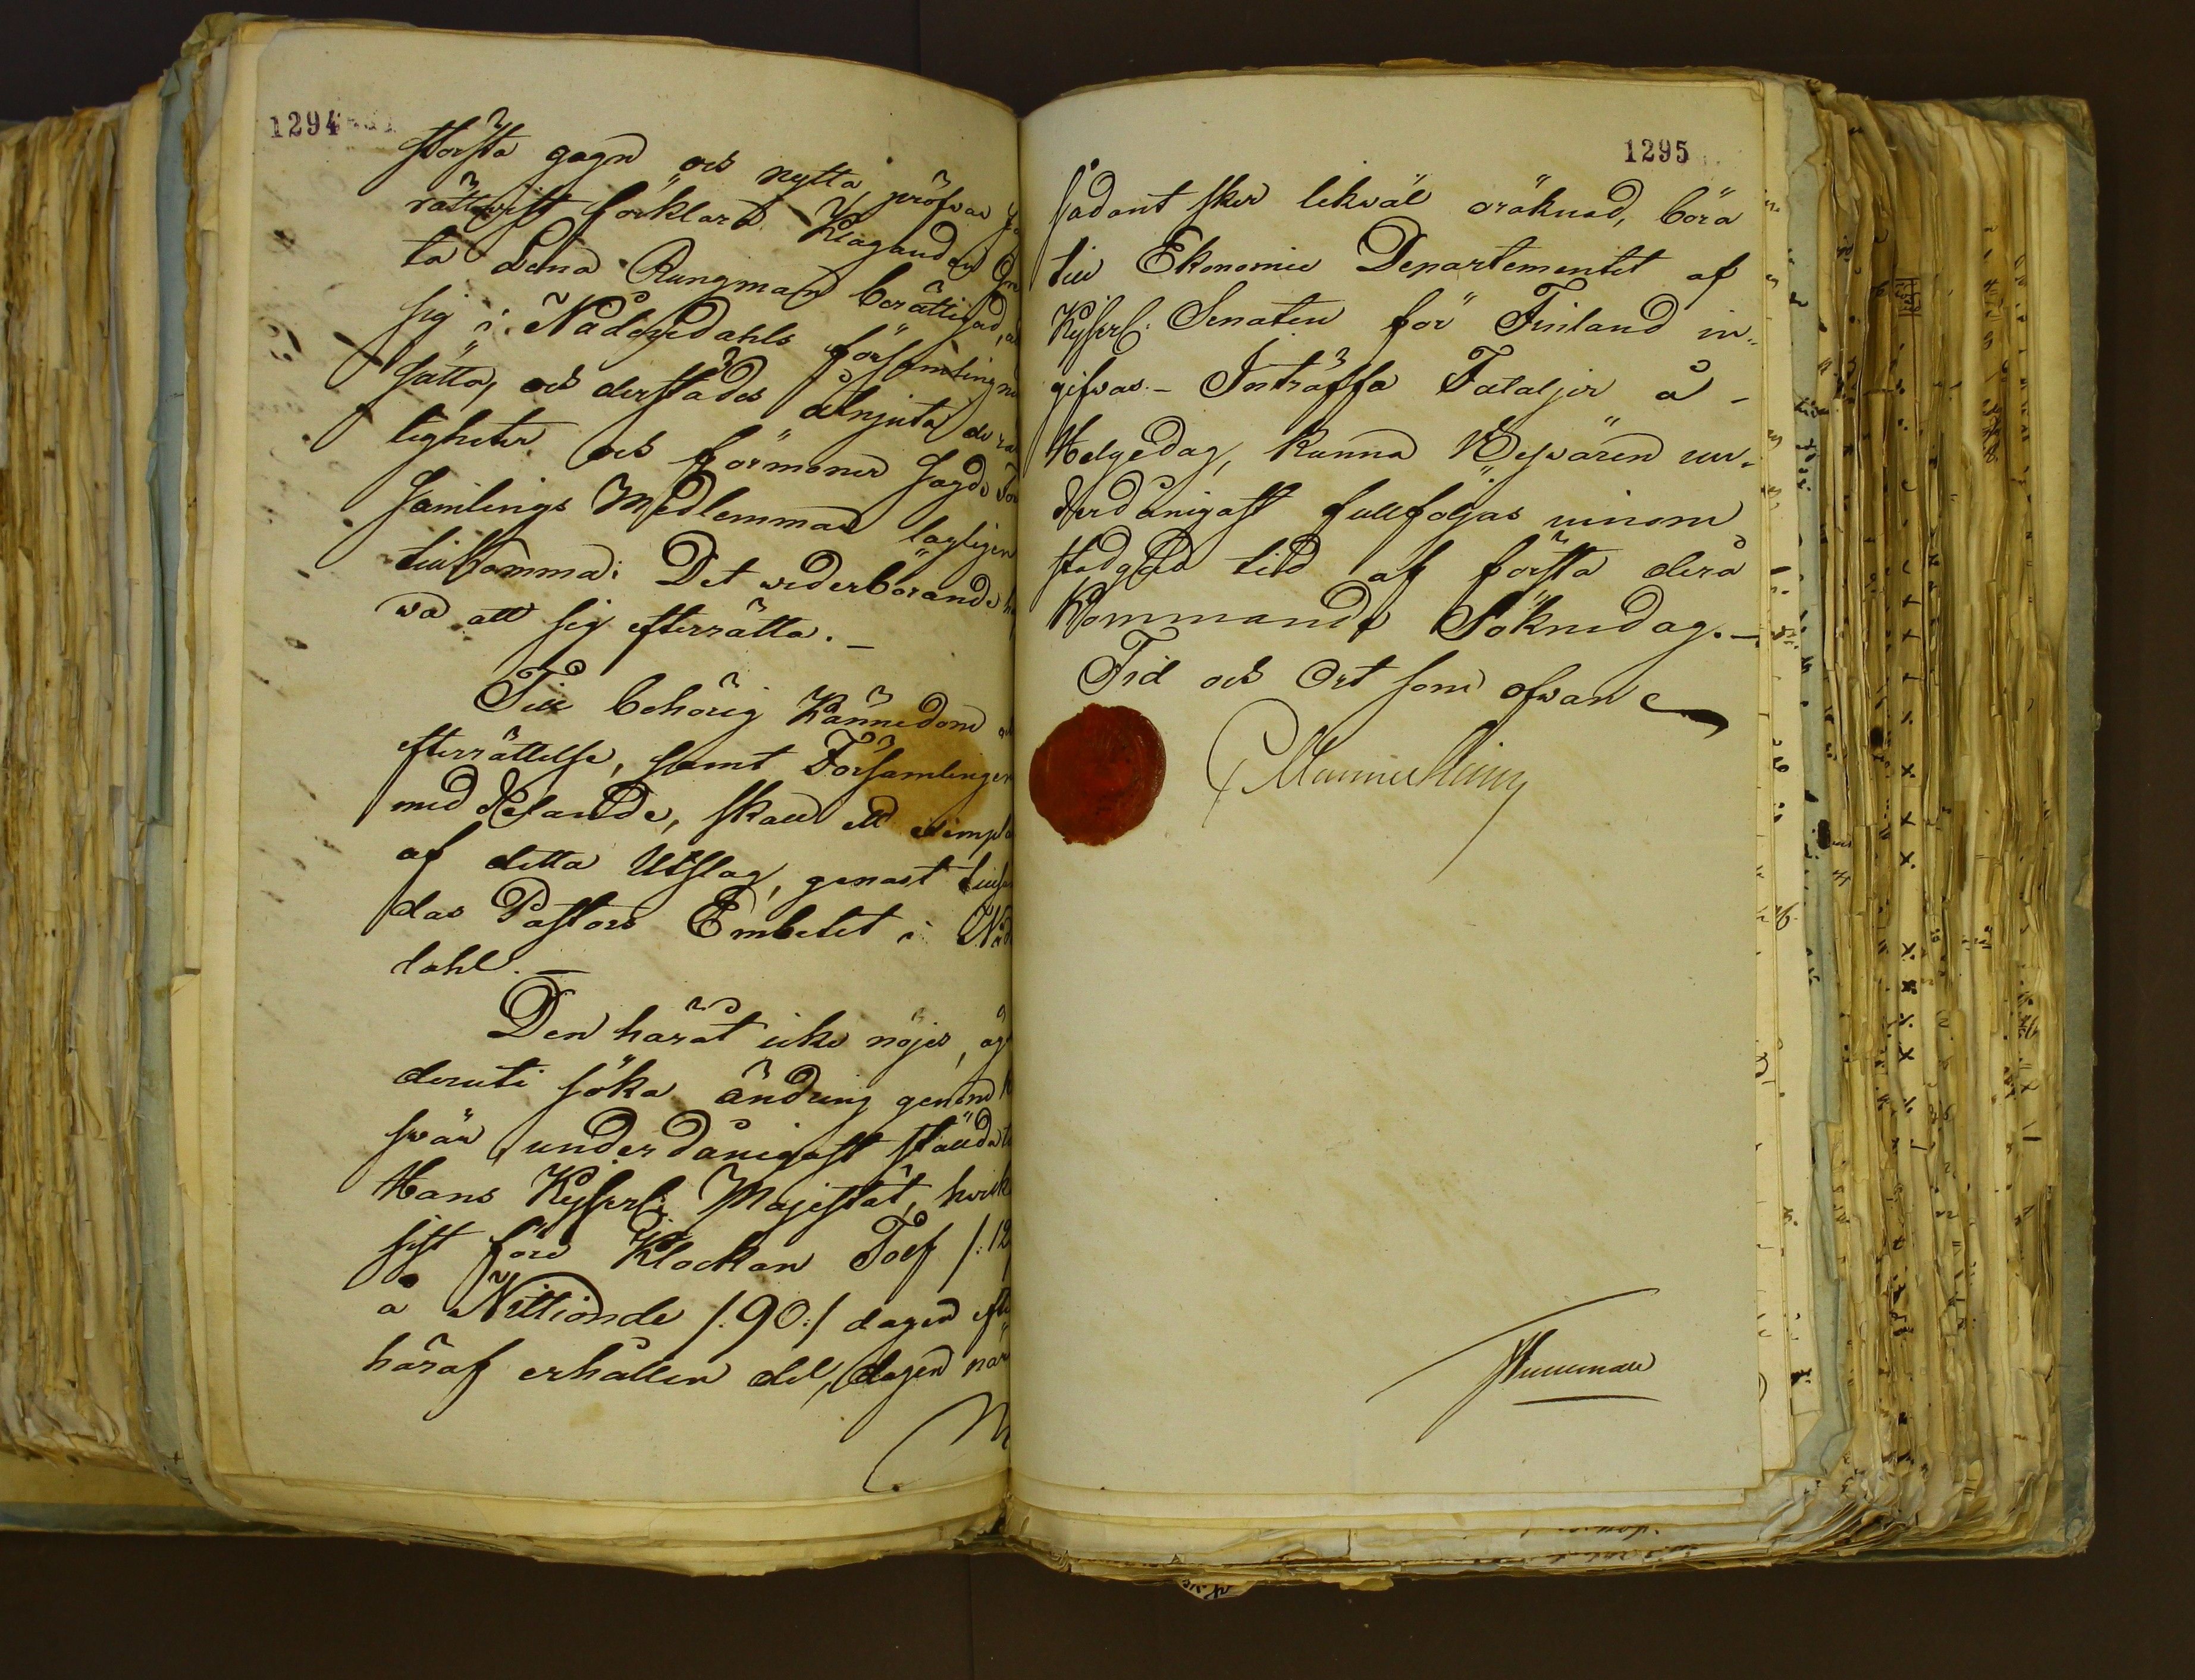 1294
största gagn och nytta, pröfvar
rättvist förklara Klaganden
ta Lena Rungman berättigad,
sig i Nådendahls församling
sätta, och derstädes åtnjuta de
tigheter och förmoner sagde För
samlings Medlemmar lagligen
tillkomma: Det wederbörande
wa att sig efterrätta. —
Till behörig Kännedom
efterrättelse, samt Församlingen
meddelande, skall ett exempla
af detta Utslag, genast tills
das Pastors Embetet i Nåd
dahl. —
Den häråt icke nöjes, äg
deruti söka ändring genom
swär underdånigast ställda
Hans Kejserl: Majestät, hvilk
sist före Klockan Tolf /: 12
å Nittionde /: 90 :/ dagen efte
häraf erhållen del, dagen när
1295
sådant sker likväl oräknad, böra
till Ekonomie Departementet af
Kejserl: Senaten för Finland in„
gifvas. – Inträffa Fataljer å –
Helgedag, kunna Beswären un„
derdånigast fullföljas innom
stadgad tid af första derå
Kommande Söknedag. —
Tid och Ort som ofwan
C Mannerheim